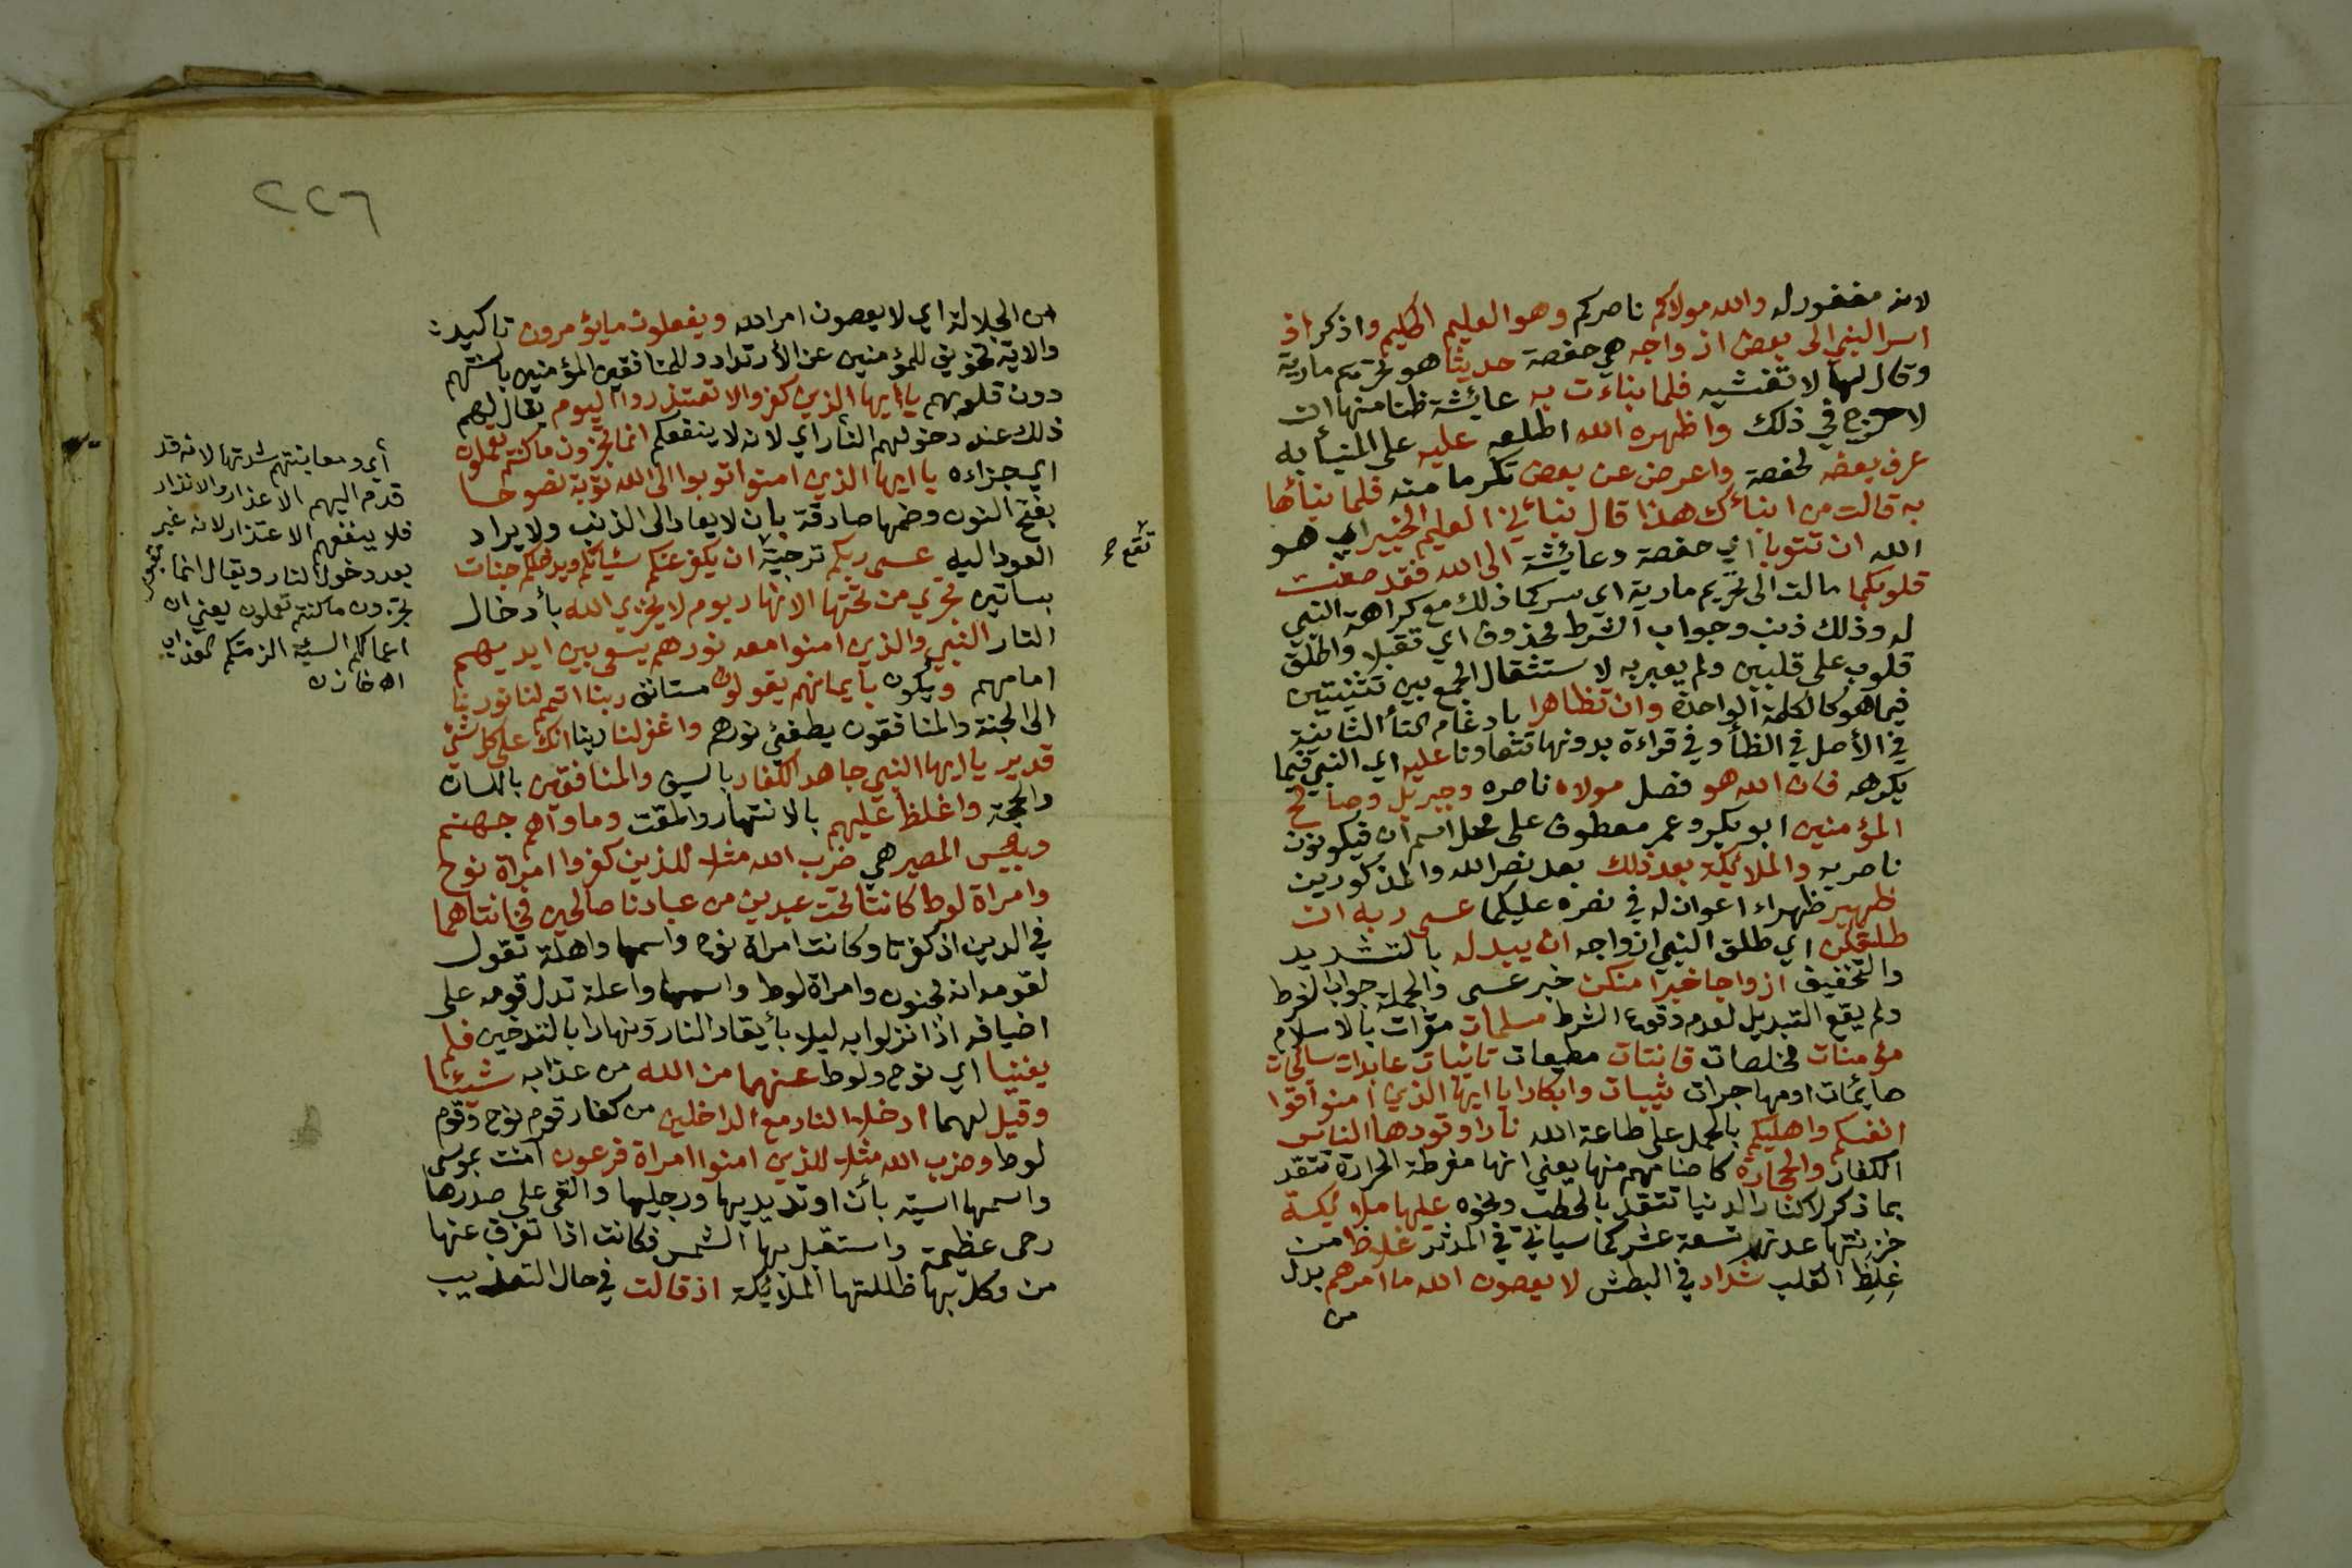 لانه مغفور له والله مولاكم ناصركم وهو العليم الحكيم واذكر اذ
اسر النبي الى بعض ازواجه هي حفصة حديثا هو تحريم مارية
وقال لها لا تفشيه فلما نباءت به عائشة ظنا منها ان
لا حرج في ذلك واظهره الله اطلعه عليه على المنبأ به
عرف بعضه لحفصة واعرض عن بعض تكرما منه فلما نبأها
به قالت من انبأك هذا قال نبأني العليم الخبير اي هو
الله ان تتوبا اي حفصة وعائشة الى الله فقد صغت
قلوبكما مالت الى تحريم مارية اي سركما ذلك مع كراهة النبي
له وذلك ذنب وجواب الشرط محذوف اي تقبلا واطلق
قلوب على قلبين ولم يعبر به لاستثقال الجمع بين تثنيتين
فيما هو كالكلمة الواحدة وان تظاهرا بادغام التأ الثانية
في الأصل في الظأ وفي قراءة بدونها تتعاونا عليه اي النبي فيما
يكرهه فان الله هو فصل مولاه ناصره وجبريل وصالح
المؤمنين ابو بكر وعمر معطوف على محل اسم ان فيكونون
ناصريه والملائكة بعد ذلك بعد نصر الله والمذكورين
ظهير ظهراء اعوان له في نصره عليكما عسى ربه ان
طلقكن اي طلق النبي ازواجه ان يبدله بالتشديد
والتخفيف ازواجا خيرا منكن خبر عسى والجملة جواب الشرط
ولم يقع التبديل لعدم وقوع الشرط مسلمات مقرات بالاسلام
مؤمنات مخلصات قانتات مطيعات تائبات عابدات سائحات
صائمات او مهاجرات ثيبات وابكارا يا ايها الذين امنوا قوا
انفسكم واهليكم بالحمل على طاعة الله نارا وقودها الناس
الكفار والحجارة كاصنامهم منها يعني انها مفرطة الحرارة تتقد
بما ذكر لا كنار الدنيا تتقد بالحطب ونحوه عليها ملائكة
خزنتها عدتهم تسعة عشر كما سياتي في المدثر غلاظ من
غلظ القلب شداد في البطش لا يعصون الله ما امرهم بدل
من
٢٢٦
من الجلالة اي لا يعصون امر الله ويفعلون ما يؤمرون تاكيد
والاية تخويف للمؤمنين عن الأرتداد وللمنافقين المؤمنين بالسنتهم
دون قلوبهم يا ايها الذين كفروا لا تعتذروا اليوم يقال لهم
ذلك عند دخولهم النار اي لانه لا ينفعكم انما تجزون ما كنتم تعملون
اي جزاءه يا ايها الذين امنوا توبوا الى الله توبة نصوحا
بفتح النون وضمها صادقة بان لا يعاد الى الذنب ولا يراد
العود اليه عسى ربكم ترجية ان يكفر عنكم سيئاتكم ويدخلكم جنات
بساتين تجري من تحتها الانهار يوم لا يخزي الله بأدخال
النار النبي والذين امنوا معه نورهم يسعى بين ايديهم
امامهم ويكون بايمانهم يقولون مستانف ربنا اتمم لنا نورنا
الى الجنة والمنافقون يطفئ نورهم واغفر لنا ربنا انك على كل شئ
قدير يا ايها النبي جاهد الكفار بالسيف والمنافقين باللسان
والحجة واغلظ عليهم بالانتهار والمقت وماواهم جهنم
وبئس المصير هي ضرب الله مثلا للذين كفروا امراة نوح
وامراة لوط كانتا تحت عبدين من عبادنا صالحين فخانتاهما
في الدين اذ كفرتا وكانت امراة نوح واسمها واهلة تقول
لقومه انه مجنون وامراة لوط واسمها واعلة تدل قومه على
اضيافه اذا نزلوا به ليلا بأيقاد النار ونهارا بالتدخين فلم
يغنيا اي نوح ولوط عنهما من الله من عذابه شيئا
وقيل لهما ادخلا النار مع الداخلين من كفار قوم نوح وقوم
لوط وضرب الله مثلا للذين امنوا امراة فرعون امنت بموسى
واسمها اسية بأن اوتد يديها ورجليها والقى على صدرها
رحى عظيمة واستقبل بها الشمس فكانت اذا تفرق عنها
من وكل بها ظللتها الملائكة اذ قالت في حال التعذيب
تقع
أي ومعاينتهم شدتها لانه قد
قدم اليهم الاعذار والانذار
فلا ينفعهم الاعتذار لانه غير
بعد دخول النار ويقال انما
تجزون ما كنتم تعملون يعني ان
اعمالكم السيئة الزمتكم العذاب
اه خازن